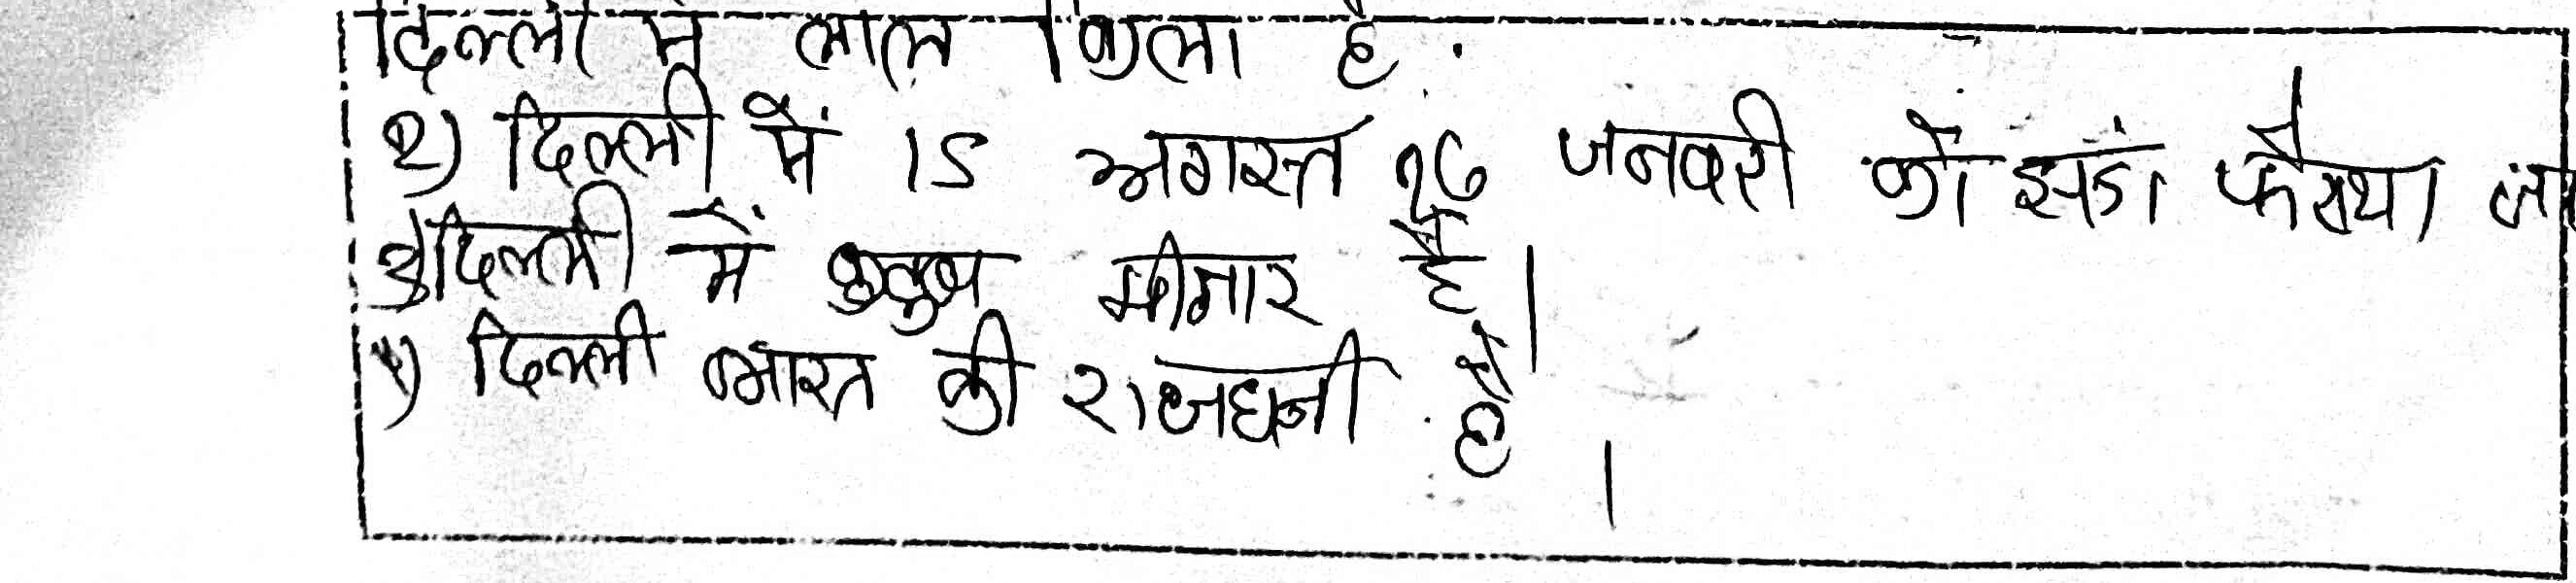 दिल्ली में लाल किला है.
२) दिल्ली में 15 अगस्त २6 जनवरी को झंडा
३) दिल्ली में कुतुब मीनार है।
४) दिल्ली भारत की राजधनी है।